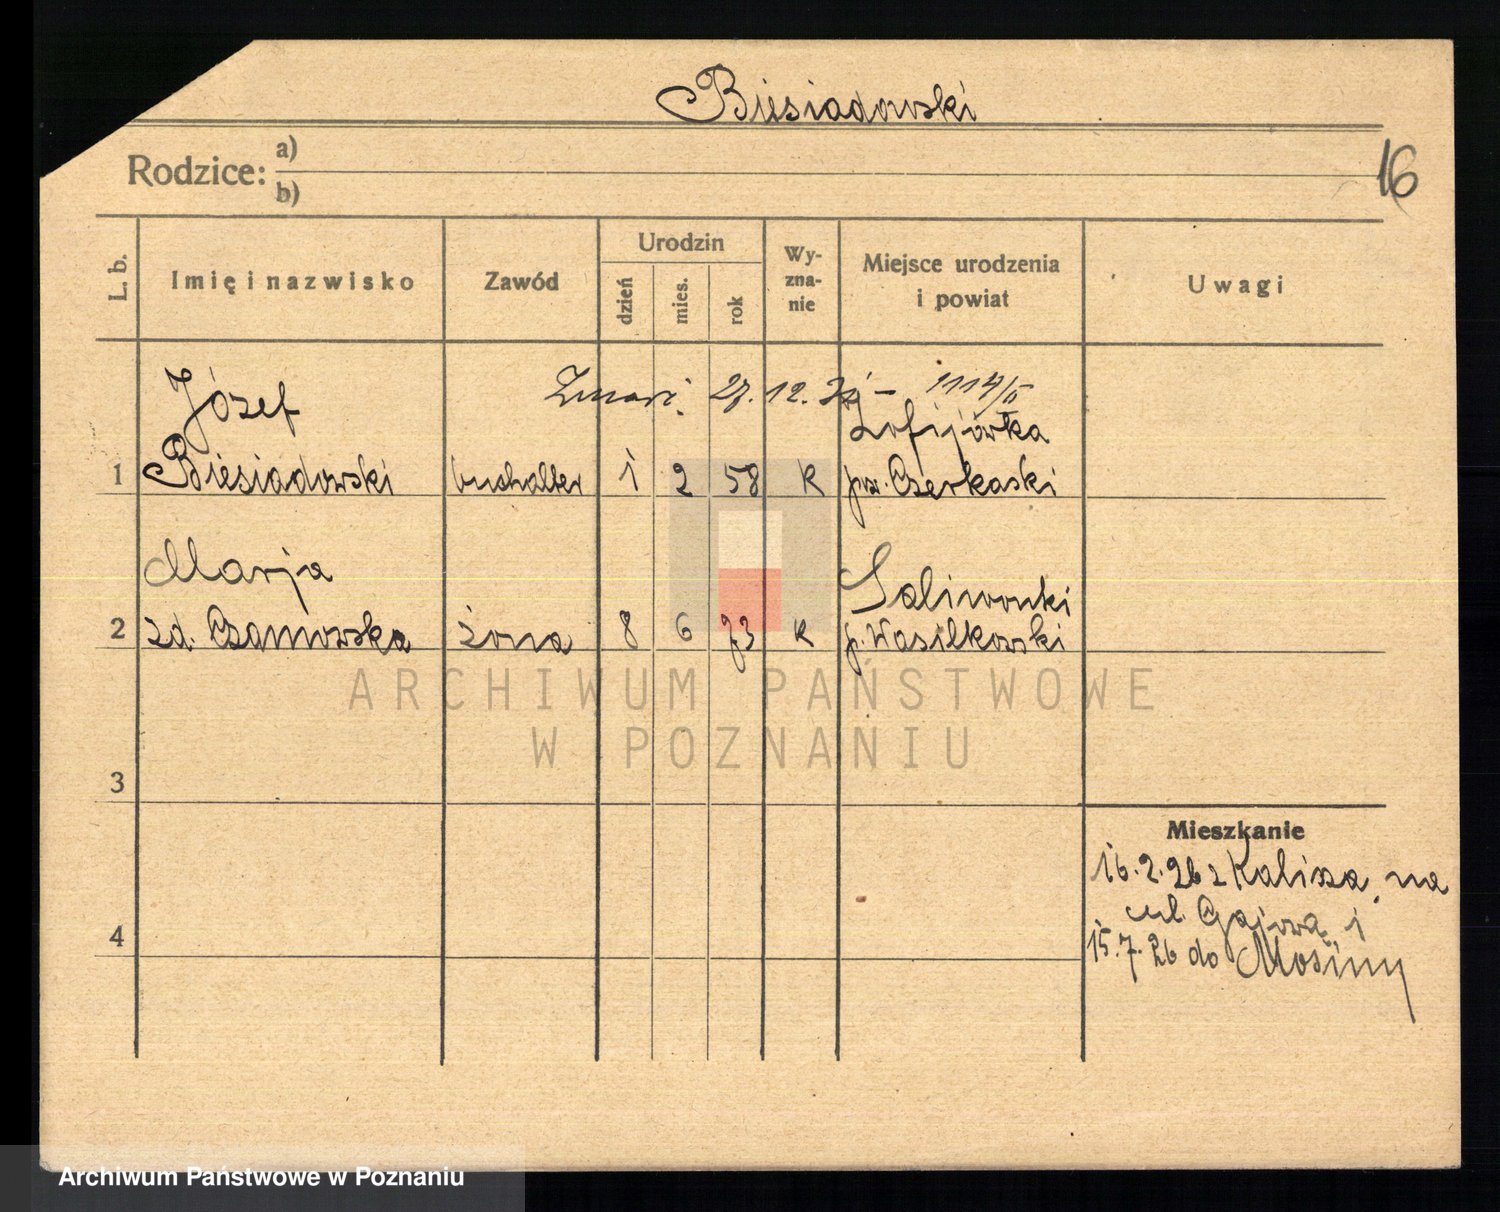 Biesiadowski
16
Rodzice:
a)
b)
L. b.
Imię i nazwisko
Zawód
Urodzin
dzień
mies.
rok
Wy-
zna-
nie
Miejsce urodzenia
i powiat
Uwagi
Zmarł. 27.12. – 1114/II
Józef
Zofijówka
1 Biesiadowski buchalter 1 2 58 k pow. Czerkaski
Marja
Saliwonki
2 zd. Czarnowska żona 8 6 73 k p. Wasilkowski
ARCHIWUM PAŃSTWOWE
W POZNANIU
3
4
Mieszkanie
16.2.26 z Kalisza, na
ul. Gajową i
15.7.26 do Mosiny
Archiwum Państwowe w Poznaniu